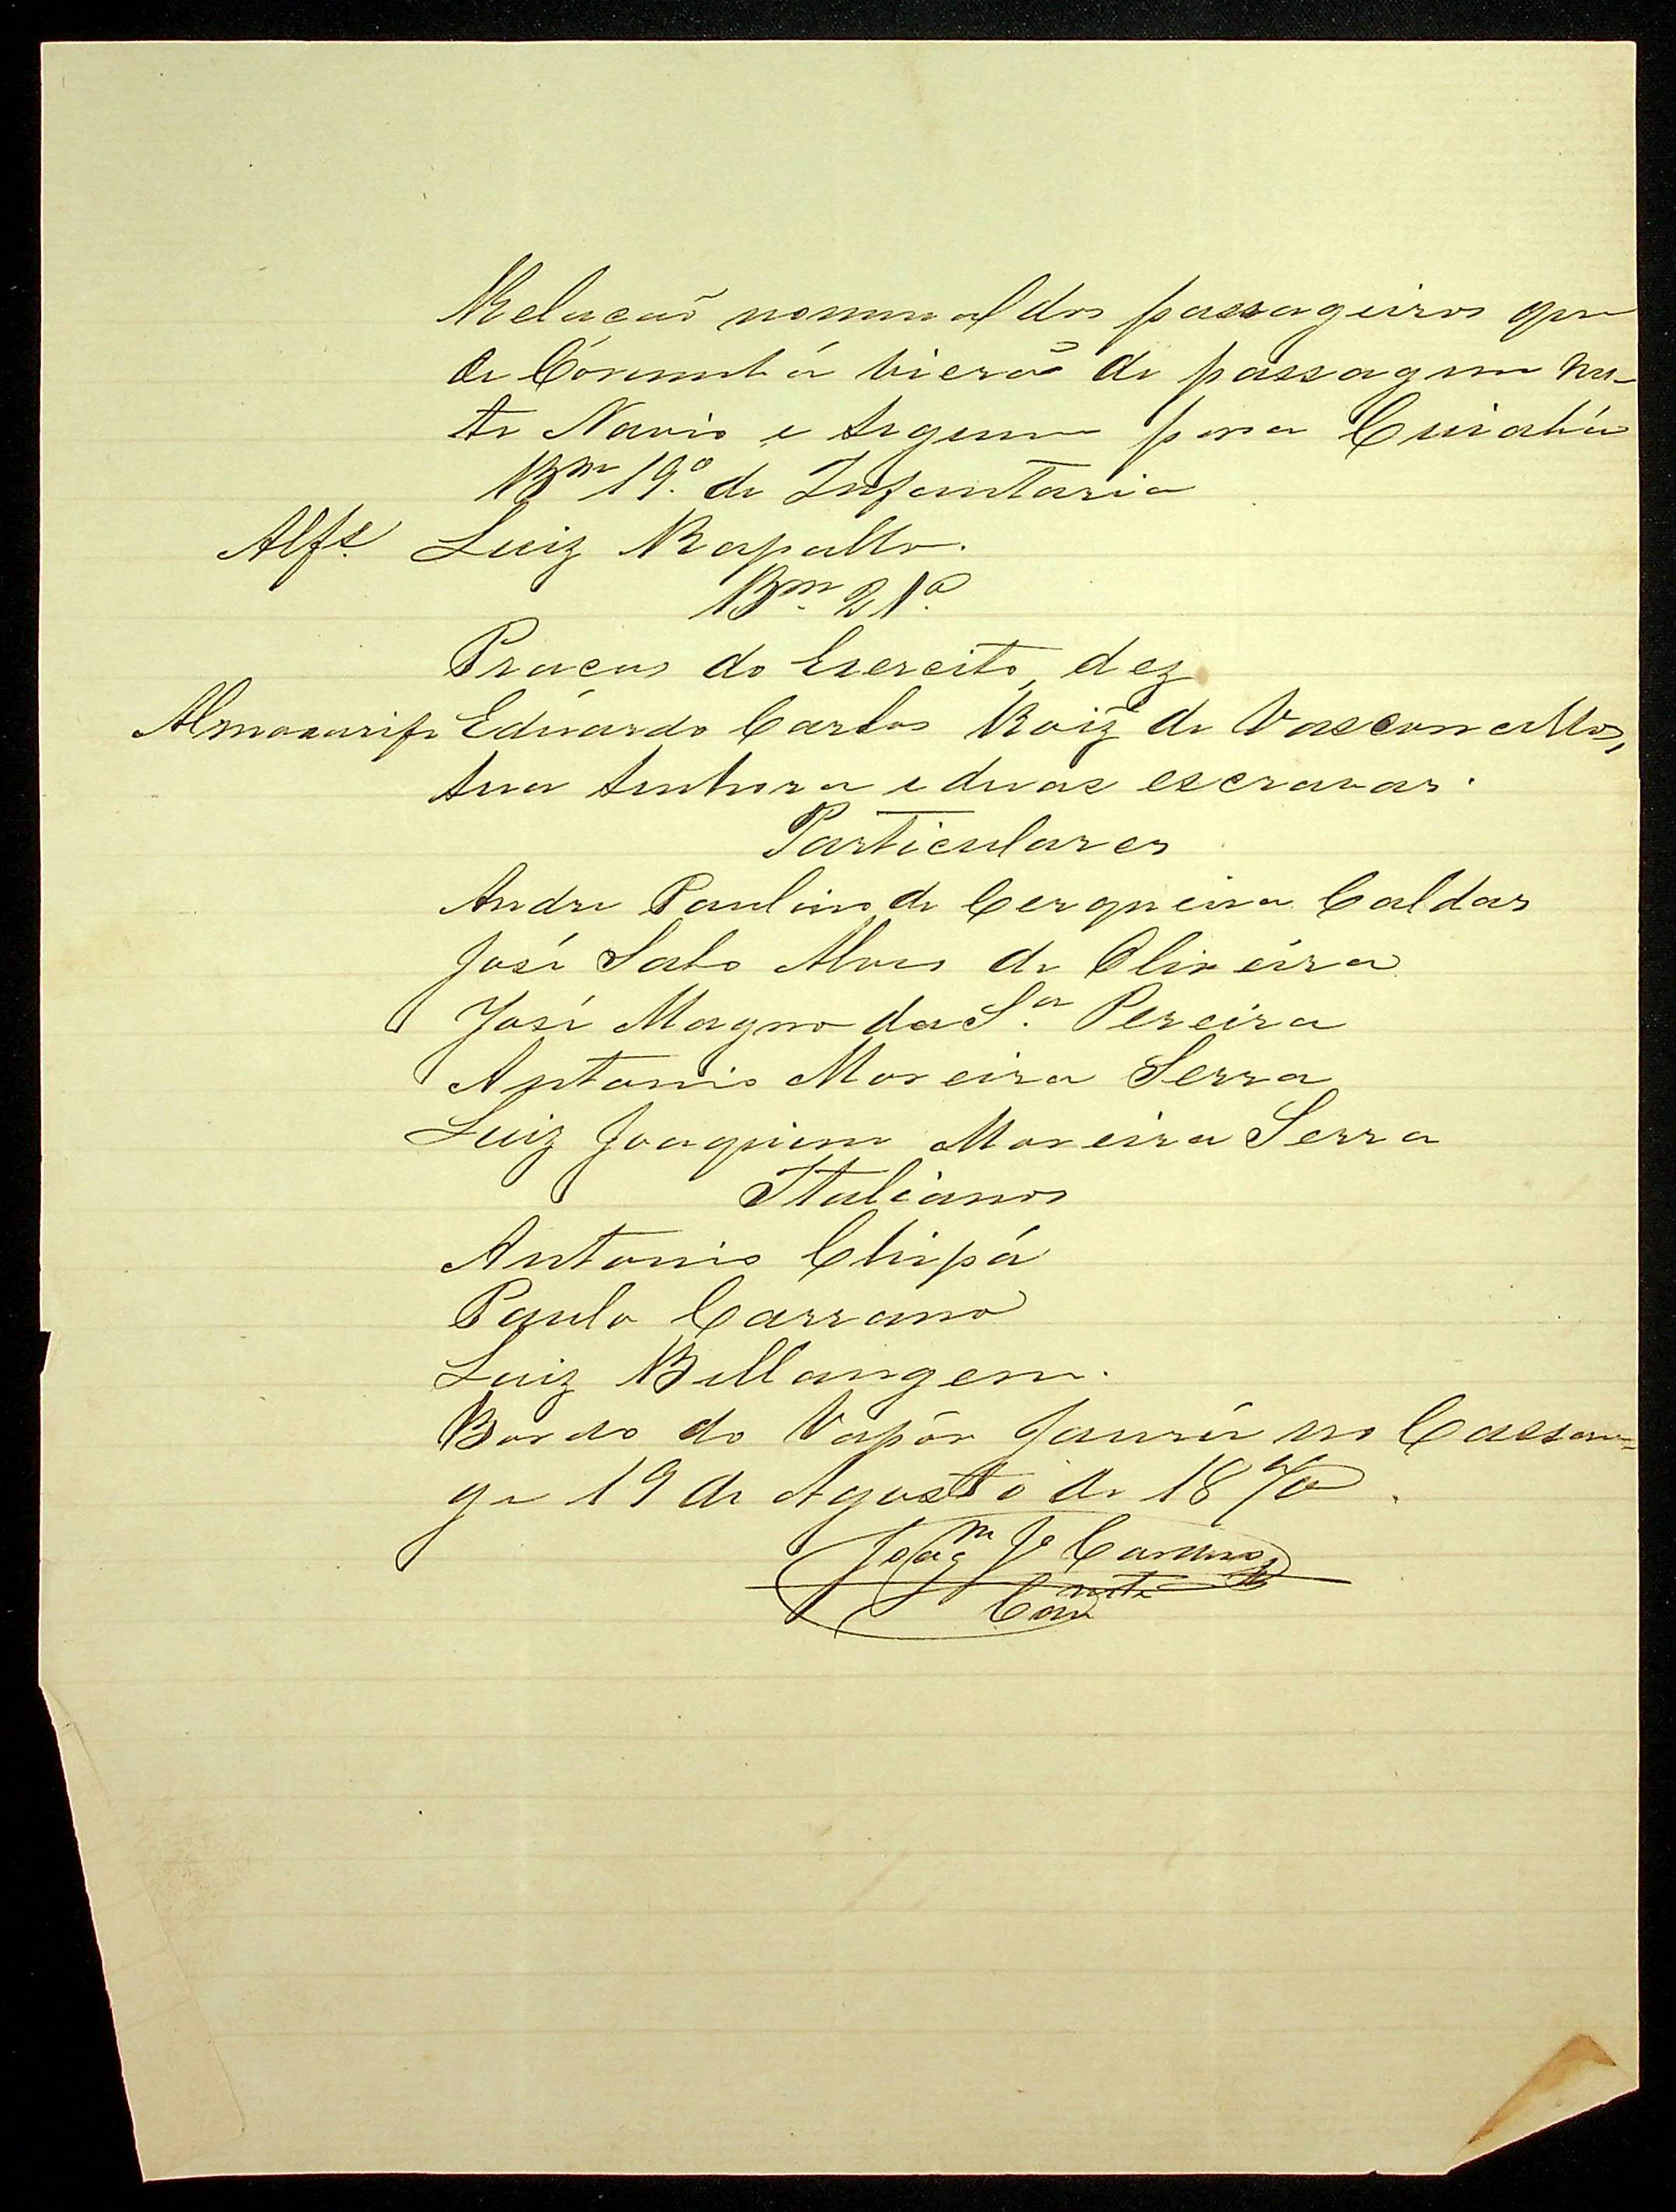 Relacaõ nominal dos passageiros que
de Córumbá vieraõ de passagem nes-
te Navio e seguem para Cuiabá
Bm 19º. de Infantaria
Alfs. Luiz Rapallo.
Bm. 21º.
Pracas do Exercito, dez
Almoxarife Eduardo Carlos Roiz de Vasconcellos,
sua senhora e duas escravas.
Particulares
Andre Paulino de Cerqueira Caldas
José Sabo Alves de Oliveira
José Magno da Sª. Pereira
Antonio Moreira Serra
Luiz Joaquim Moreira Serra
Italianos
Antonio Chipá
Paulo Carrano
Luiz Bellangem.
Bordo do Vapôr Jaurú no Cassan=
ge 19 de Agosto de 1870.
Joaqm Je
Comte